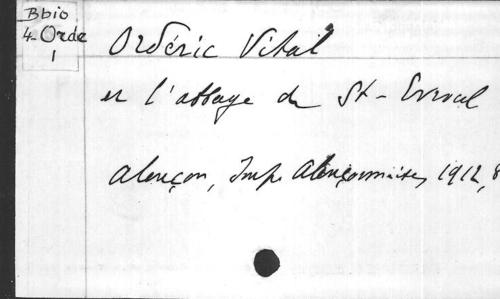 Bbio
4. Orde
1
Ordéric Vital
et l'abbaye de St-Evroul
Alençon, Imp. Alençonnaise, 1912, 8